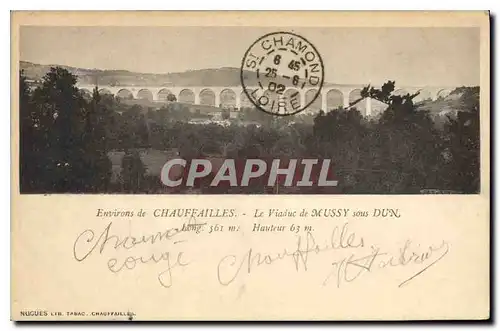 ST CHAMOND
6 45
25-6
02
LOIRE
CPAPHIL
Environs de CHAUFFAILLES. - Le Viaduc de MUSSY sous DUN,
Long. 561 m: Hauteur 63 m.
Chauffailles
NUGUES LIB. TABAC. CHAUFFAILLES.